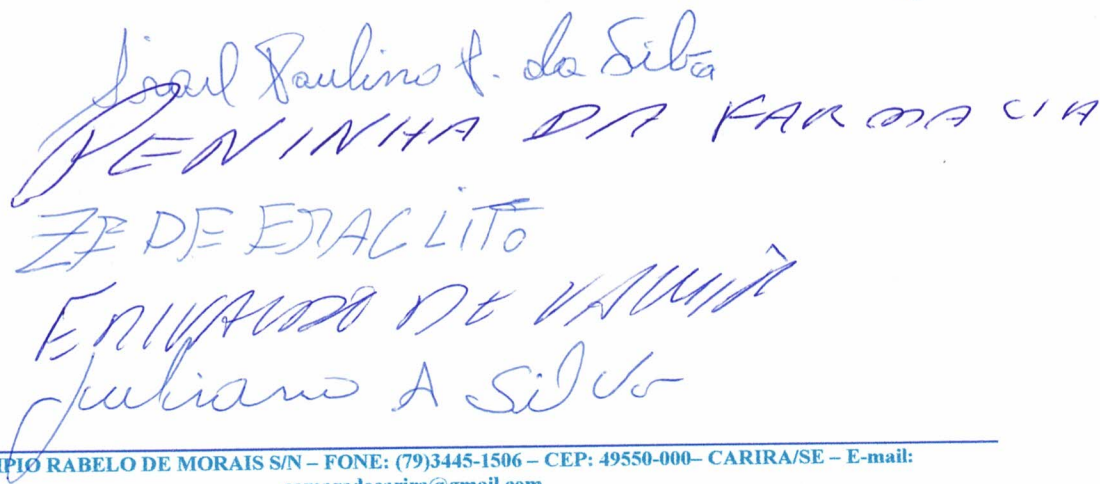 Paulino P. da Silva
PENINHA DA FARMACIA
ZE DE ERACLITO
ERIVALDO DE
Juliano A Silva
RABELO DE MORAIS S/N – FONE: (79)3445-1506 – CEP: 49550-000– CARIRA/SE – E-mail: